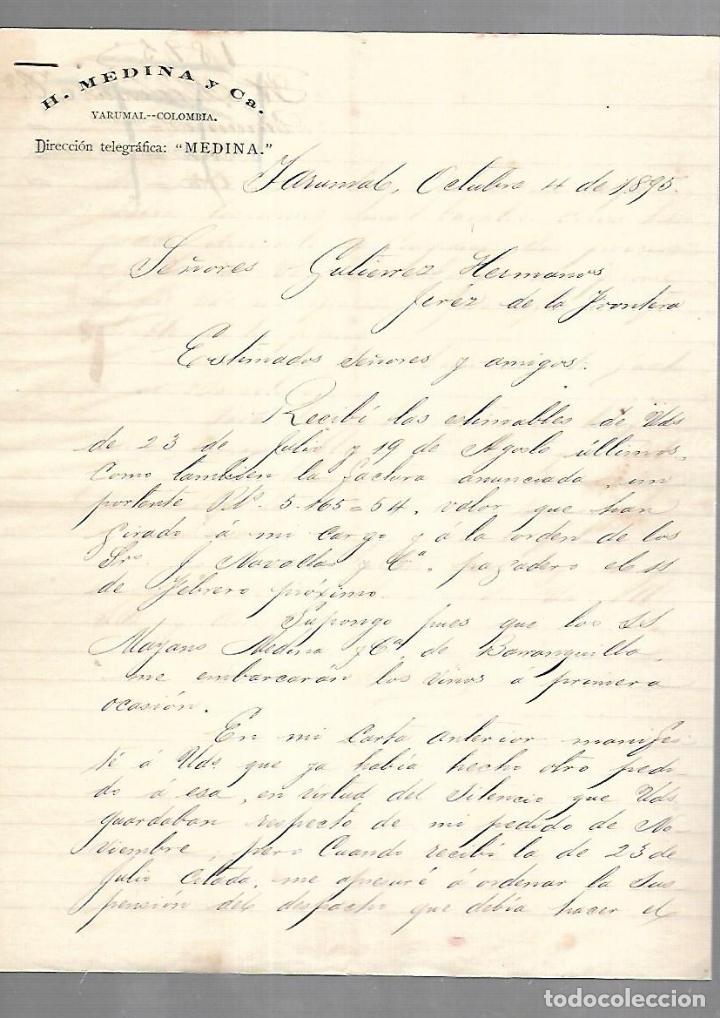 H. MEDINA y Ca.
YARUMAL--COLOMBIA.
Dirección telegráfica: "MEDINA."
Yarumal, Octubre 4 de 1895.
Señores Gutierrez Hermanos
Jeréz de la Frontera
Estimados señores y amigos:
Recibí las estimables de Uds
de 23 de Julio y 19 de Agosto últimos,
como tambien la factura anunciada, im
portante Pts. 5.165=54, valor que han
girado á mi cargo y á la orden de los
Srs. J. y Ca. pagadero el 11
de Febrero próximo.
Supongo pues que los SS
Medina y Ca. de Barranquilla,
me embarcarán los vinos á primera
ocasión.
En mi carta anterior manifes
té á Uds. que ya había hecho otro pedi
do á esa, en virtud del silencio que Uds
guardaban respecto de mi pedido de No
viembre, pero cuando recibí la de 23 de
Julio citada, me apresuré á ordenar la sus
pensión del despacho que debía hacer el
todocoleccion
todocoleccion.net